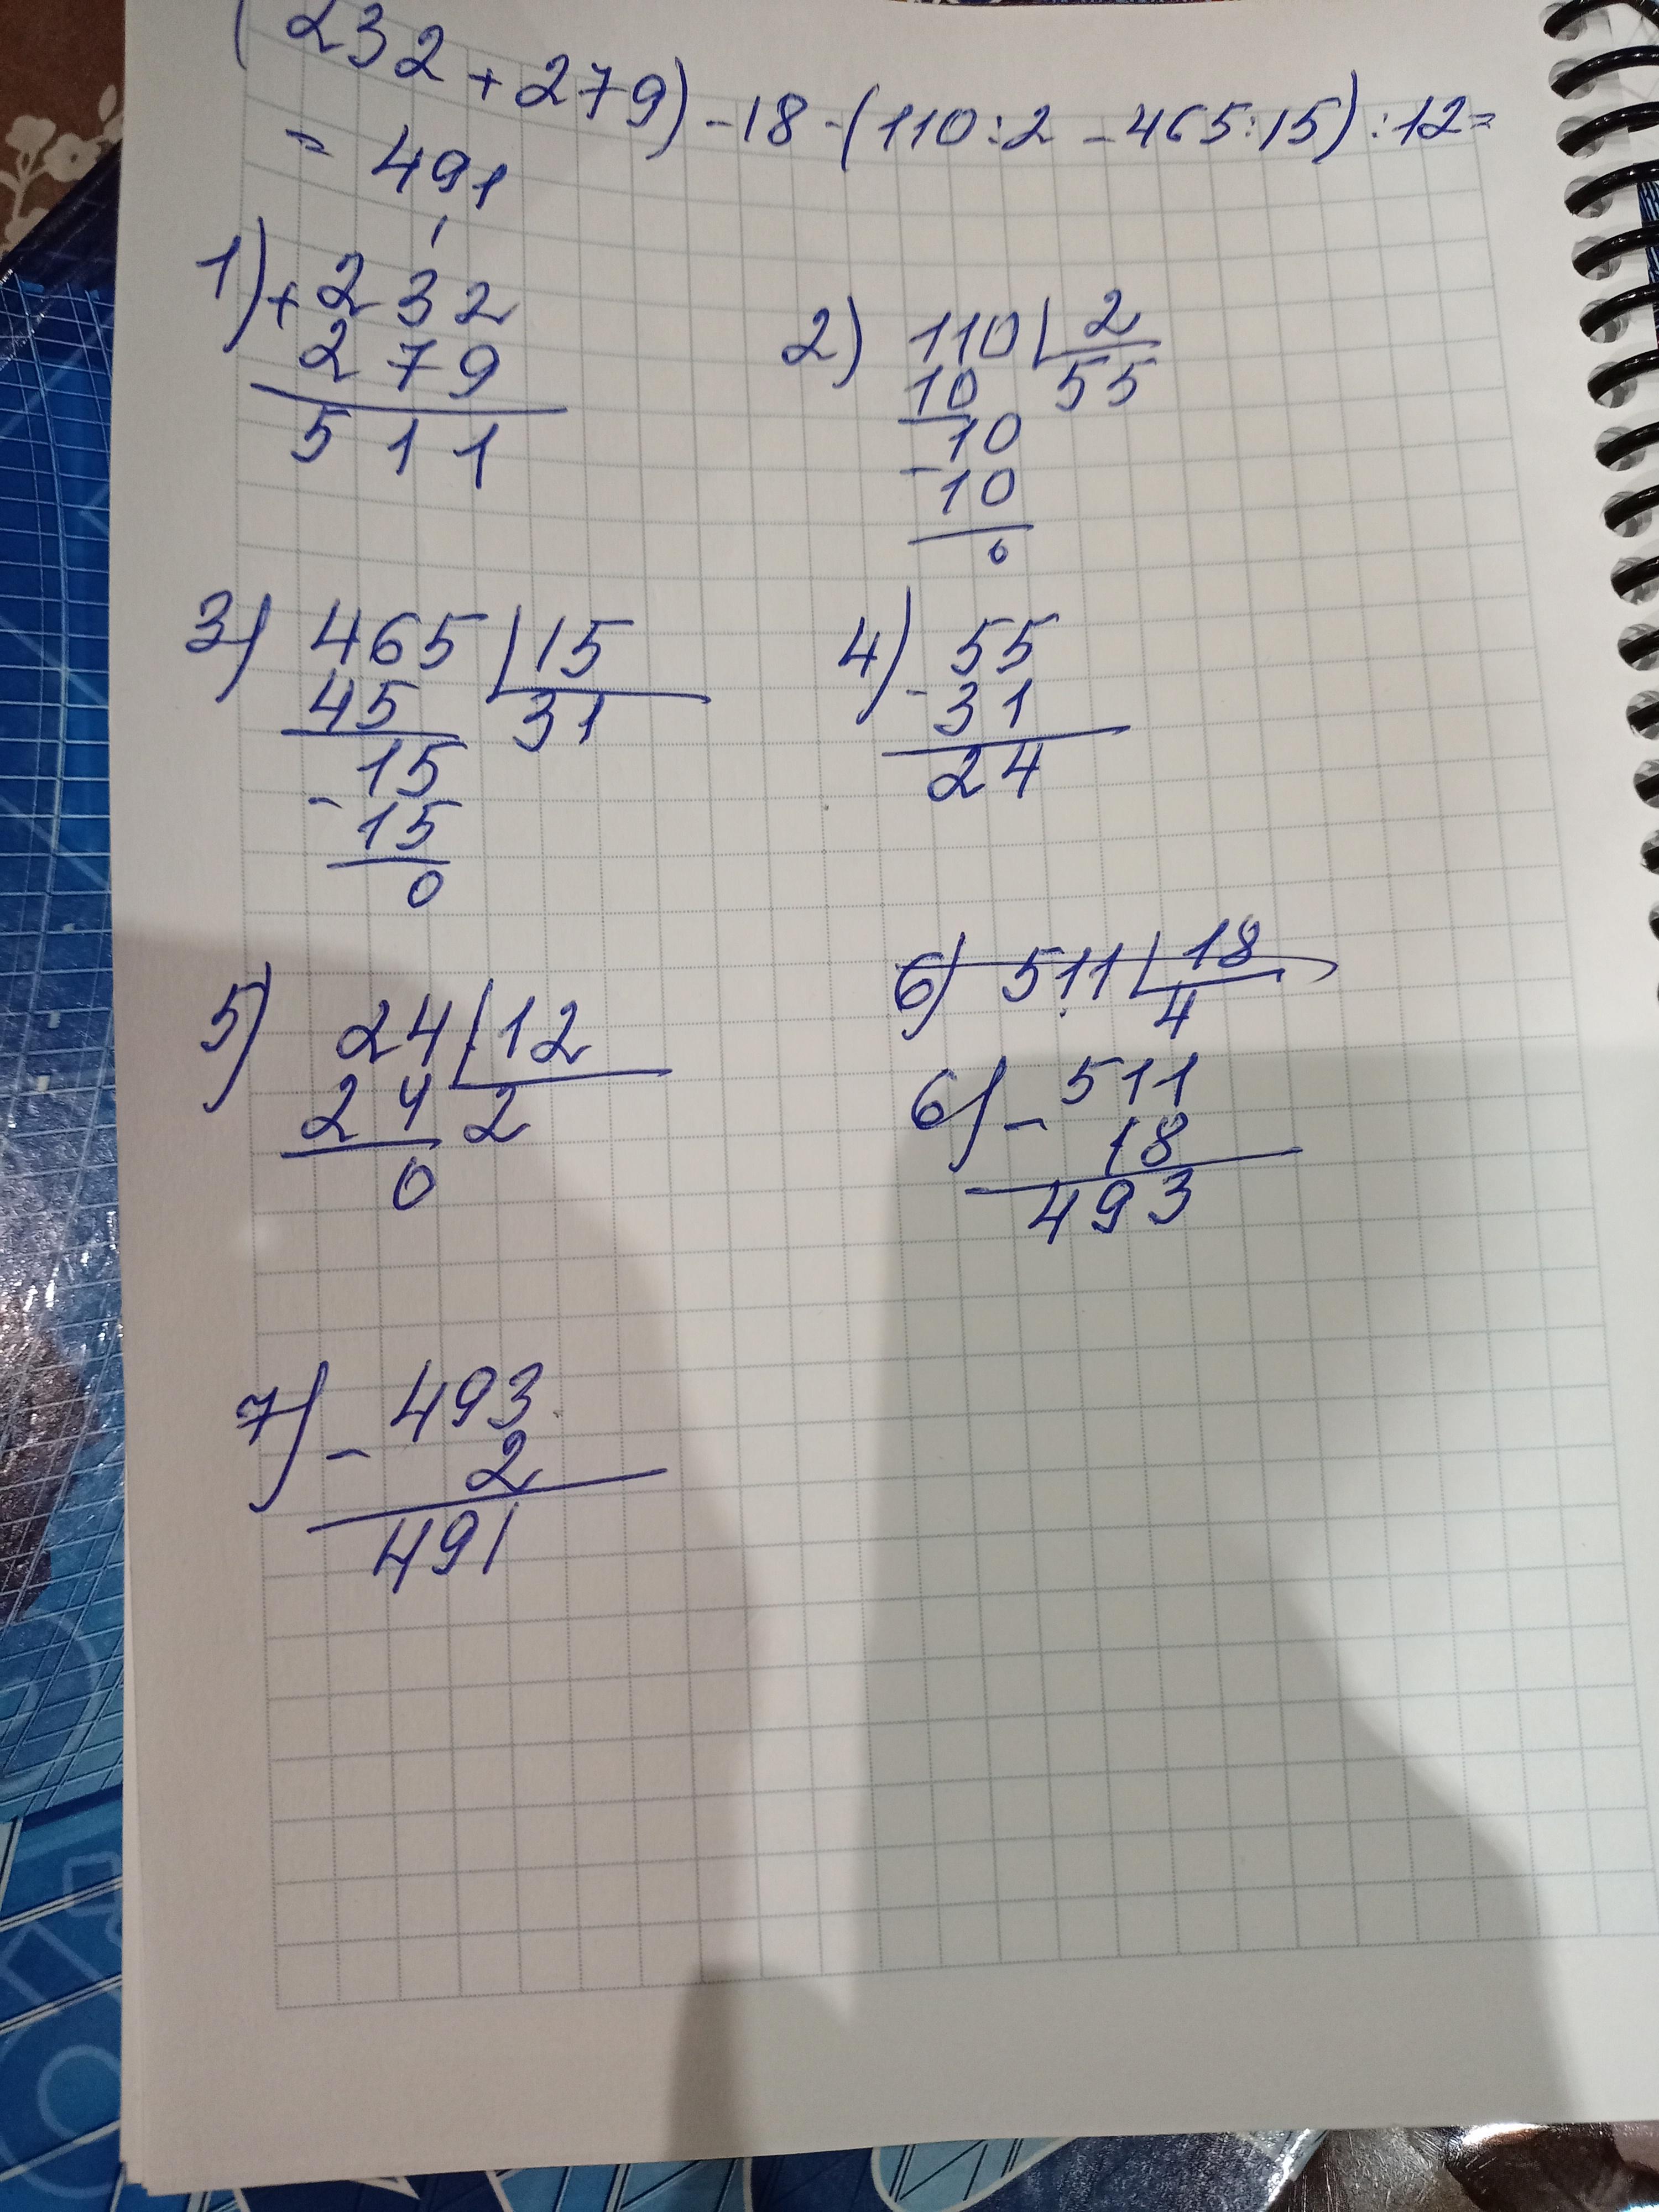 (232+279)-18-(110:2-465:15):12=
=491
1) + 232
279
511
2) 110 2
10 55
10
- 10
0
3) 465 15
45 31
15
- 15
0
4) - 55
31
24
5) 24 12
24 2
0
6) 511 18
4
6) - 511
18
493
7) - 493
2
491